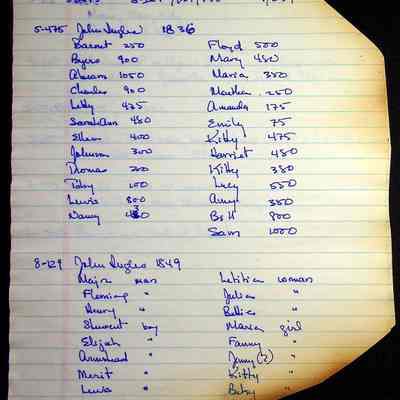 5-475 John Ingles 1836
Barnet 250 Floyd 500
Byers 900 Mary 450
Abram 1050 Maria 350
Charles 900 Martha 250
Letty 475 Amanda 175
Sarah Ann 450 Emily 75
Ellen 400 Kitty 475
Johnson 300 Harriet 450
Thomas 200 Kitty 350
Toby 100 Lucy 550
Lewis 800 Amy 350
Nancy Bill 800
Sam 1000
8-129 John Ingles 1849
Major man Letitia woman
Fleming " Julia "
Henry " "
Stewart boy Maria girl
Elijah " Fanny "
Armstead " Jenny (?) "
Merit " Kitty "
Lewis " Betsy "